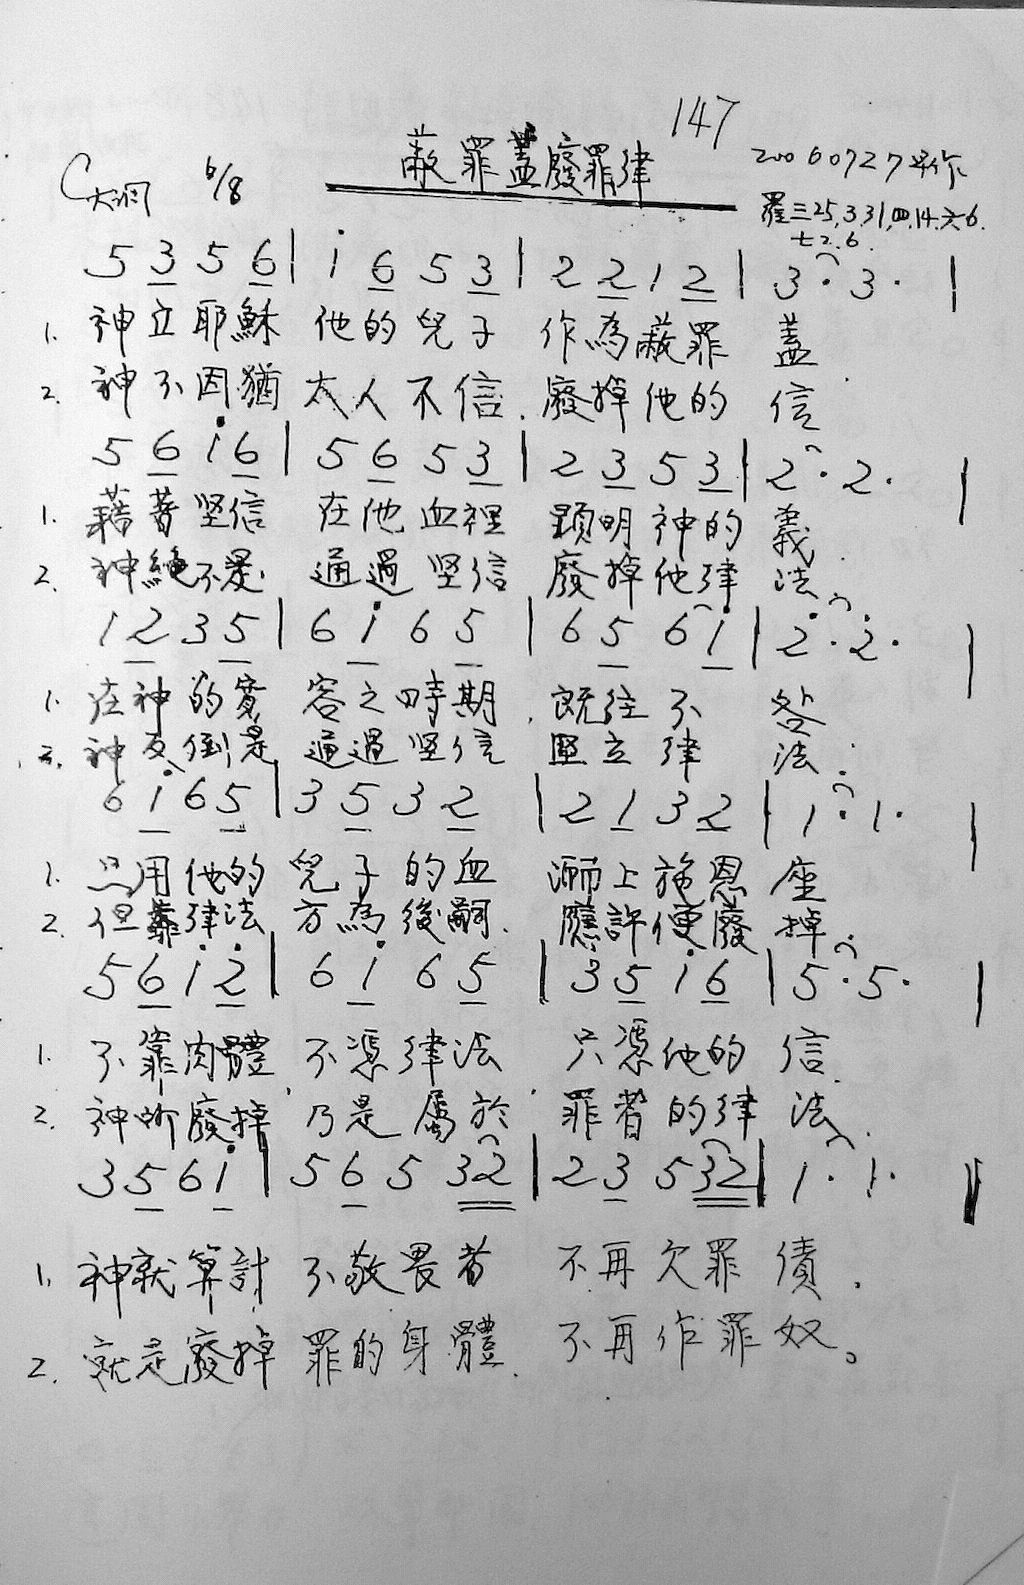 147
蔽罪蓋廢罪律
C大調 6/8 20060727
羅三25,331,四.14.六6.
七2.6.
5 3 5 6 | i 6 5 3 | 2 2 1 2 | 3 · 3 · |
1. 神立耶穌 他的兒子 作為蔽罪 蓋
2. 神不因猶 太人不信. 廢掉他的 信
5 6 i 6 | 5 6 5 3 | 2 3 5 3 | 2 · 2 · |
1. 藉著坚信 在他血裡 顯明神的 義.
2. 神絕不是 通過坚信 廢掉他律 法.
1 2 3 5 | 6 i 6 5 | 6 5 6 i | 2 · 2 · |
1. 在神的寛 容之時期. 既往不 咎
2. 神反倒是 通過坚信 堅立律 法.
6 i 6 5 | 3 5 3 2 | 2 1 3 2 | 1 · 1 · |
1. 只用他的 兒子的血 洒上施恩 座
2. 但靠律法 方為後嗣. 應許便廢 掉.
5 6 i 2 | 6 i 6 5 | 3 5 i 6 | 5 · 5 · |
1. 不靠肉體 不憑律法 只憑他的 信.
2. 神所廢掉 乃是屬於 罪者的律 法.
3 5 6 i | 5 6 5 32 | 2 3 5 32 | 1 · 1 · ||
1. 神就算計 不敬畏者 不再欠罪 債.
2. 就是廢掉 罪的身體. 不再作罪 奴。